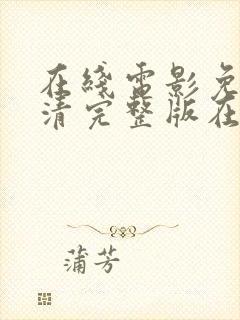 在綫電影免
清完整版在
蒲芳